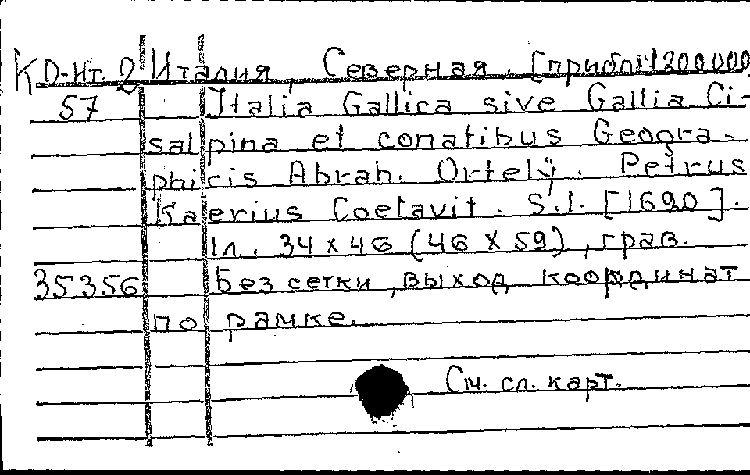 КО-Ит. 2 Италия, Северная. [прибл. 1:1200000
57 Italia Gallica sive Gallia Ci-
salpina et conatibus Geogra-
phicis Abrah. Ortelÿ. Petrus
Kaerius Coelavit. S.l. [1620].
1л. 34 x 46 (46 x 59), грав.
35356 Без сетки, выход координат
по рамке.
См. сл. карт.